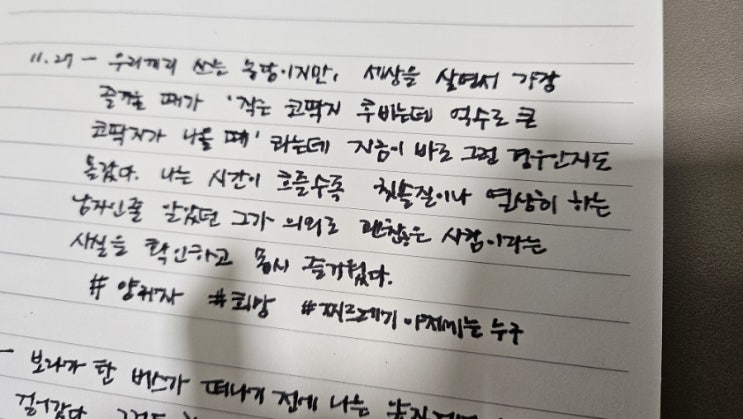 11.27 - 우리끼리 쓰는 농담이지만, 세상을 살면서 가장
즐거울 때가 '작은 코딱지 후비는데 억수로 큰
코딱지가 나올 때' 라는데 지금이 바로 그런 경우인지도
몰랐다. 나는 시간이 흐를수록 칫솔질이나 열심히 하는
남자인줄 알았던 그가 의외로 괜찮은 사람이라는
사실을 확인하고 몹시 즐거웠다.
# 양귀자 #희망 #찌르레기 아저씨는 누구
- 보라가 탄 버스가 떠나기 전에 나는
걸어갔다.